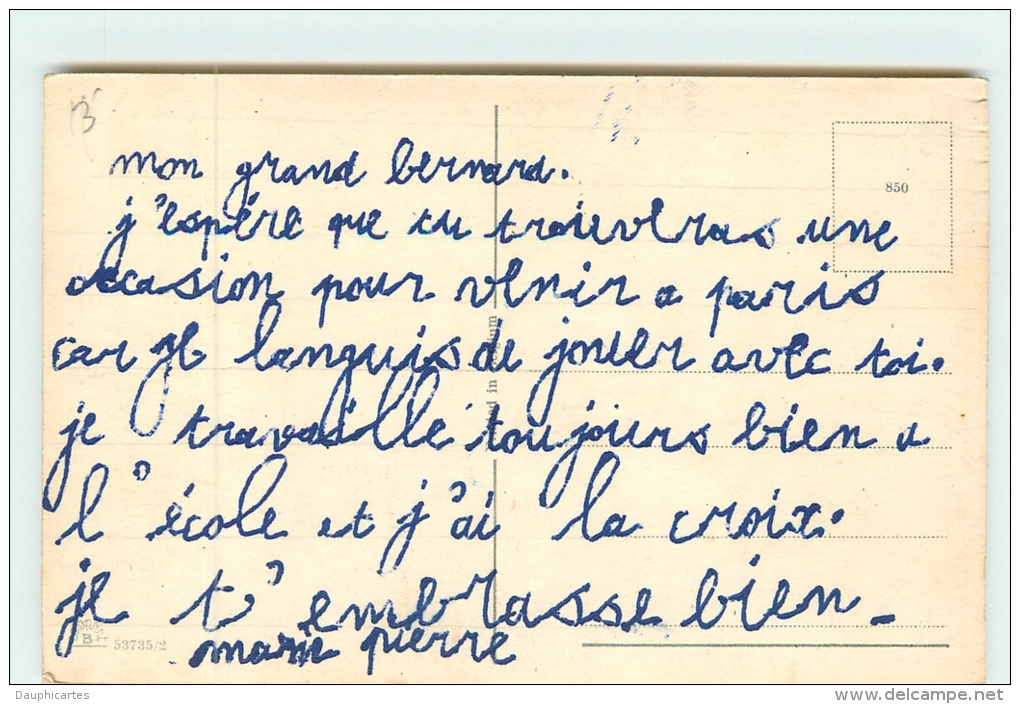 13
mon grand bernard.
850
j'espére que tu trouveras une
occasion pour venir a paris
car je languis de jouer avec toi.
je travaille toujours bien a
l'école et j'ai la croix.
je t'embrasse bien -
53735/2
marie pierre
Dauphicartes
www.delcampe.net